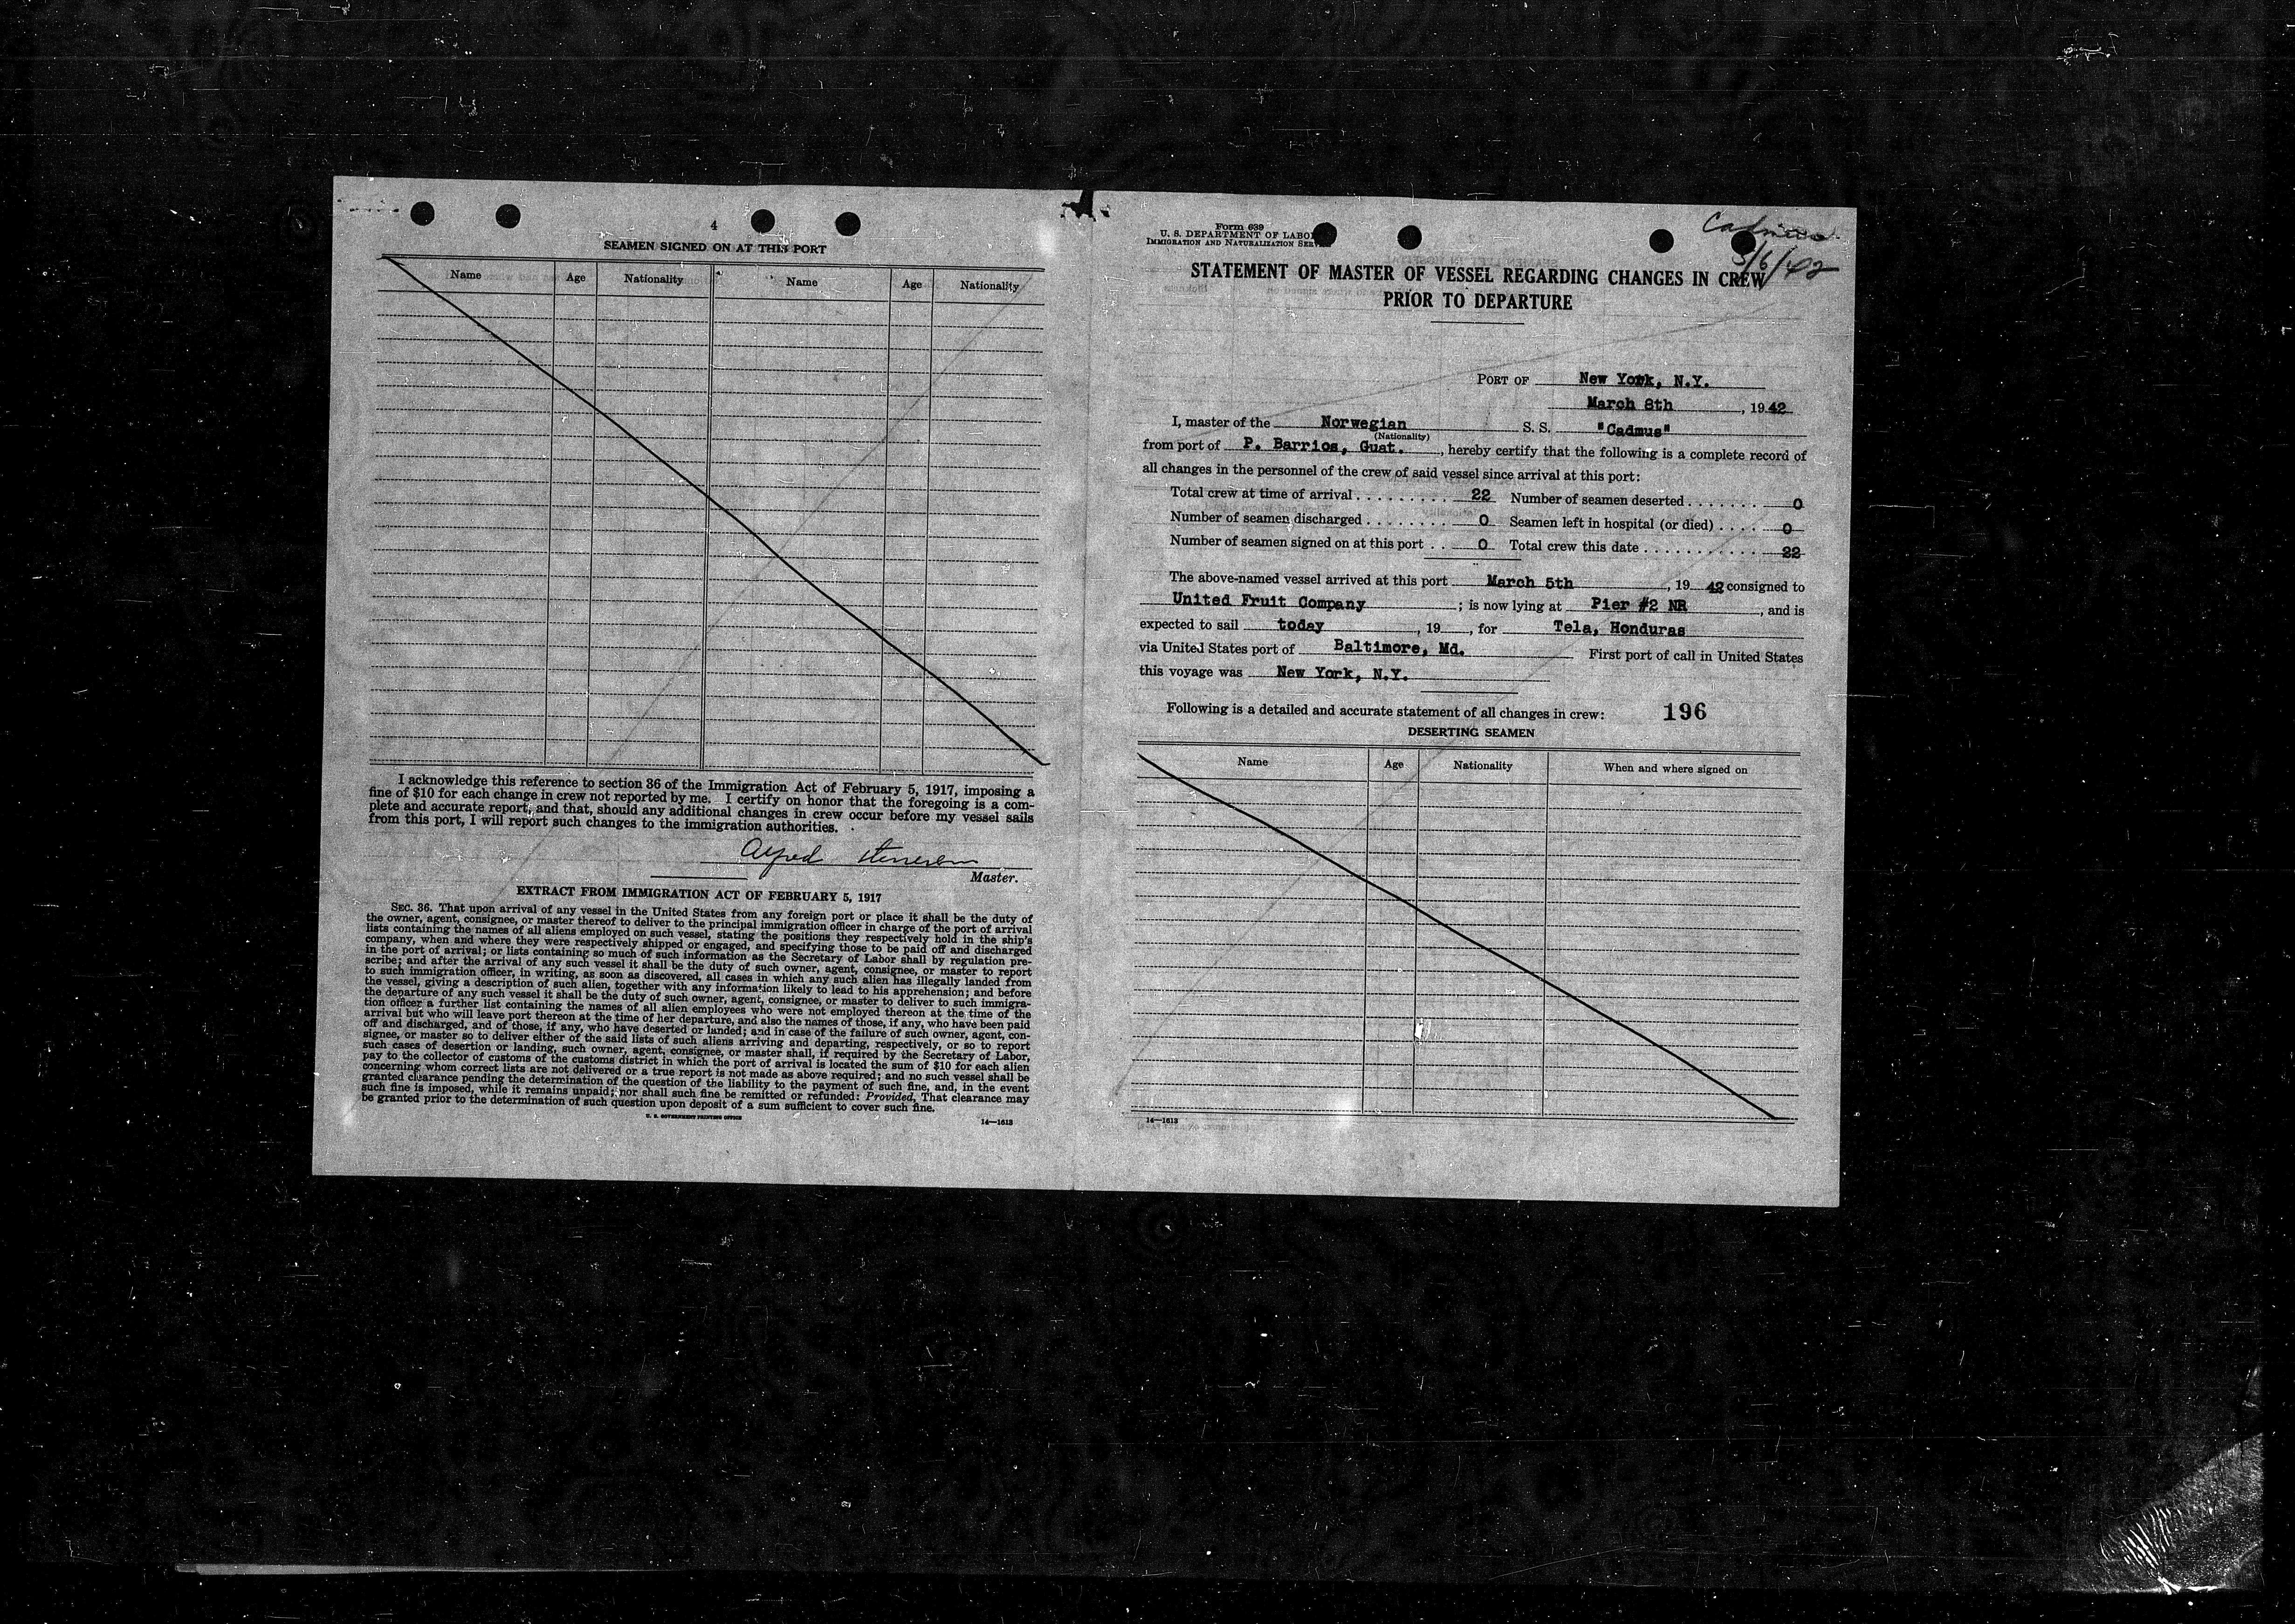 4
SEAMEN SIGNED ON AT THIS PORT
Name Age Nationality Name Age Nationality
I acknowledge this reference to section 36 of the Immigration Act of February 5, 1917, imposing a
fine of $10 for each change in crew not reported by me. I certify on honor that the foregoing is a com-
plete and accurate report, and that, should any additional changes in crew occur before my vessel sails
from this port, I will report such changes to the immigration authorities.
Alfred
Master.
EXTRACT FROM IMMIGRATION ACT OF FEBRUARY 5, 1917
SEC. 36. That upon arrival of any vessel in the United States from any foreign port or place it shall be the duty of
the owner, agent, consignee, or master thereof to deliver to the principal immigration officer in charge of the port of arrival
lists containing the names of all aliens employed on such vessel, stating the positions they respectively hold in the ship's
company, when and where they were respectively shipped or engaged, and specifying those to be paid off and discharged
in the port of arrival; or lists containing so much of such information as the Secretary of Labor shall by regulation pre-
scribe; and after the arrival of any such vessel it shall be the duty of such owner, agent, consignee, or master to report
to such immigration officer, in writing, as soon as discovered, all cases in which any such alien has illegally landed from
the vessel, giving a description of such alien, together with any information likely to lead to his apprehension; and before
the departure of any such vessel it shall be the duty of such owner, agent, consignee, or master to deliver to such immigra-
tion officer a further list containing the names of all alien employees who were not employed thereon at the time of the
arrival but who will leave port thereon at the time of her departure, and also the names of those, if any, who have been paid
off and discharged, and of those, if any, who have deserted or landed; and in case of the failure of such owner, agent, con-
signee, or master so to deliver either of the said lists of such aliens arriving and departing, respectively, or so to report
such cases of desertion or landing, such owner, agent, consignee, or master shall, if required by the Secretary of Labor,
pay to the collector of customs of the customs district in which the port of arrival is located the sum of $10 for each alien
concerning whom correct lists are not delivered or a true report is not made as above required; and no such vessel shall be
granted clearance pending the determination of the question of the liability to the payment of such fine, and, in the event
such fine is imposed, while it remains unpaid; nor shall such fine be remitted or refunded: Provided, That clearance may
be granted prior to the determination of such question upon deposit of a sum sufficient to cover such fine.
U. S. GOVERNMENT PRINTING OFFICE
14—1613
Form 639
U. S. DEPARTMENT OF LABOR
IMMIGRATION AND NATURALIZATION SERVICE
Cadmus
3/6/42
STATEMENT OF MASTER OF VESSEL REGARDING CHANGES IN CREW
PRIOR TO DEPARTURE
PORT OF New York, N.Y.
March 8th, 1942
I, master of the Norwegian S. S. "Cadmus"
(Nationality)
from port of P. Barrios, Guat., hereby certify that the following is a complete record of
all changes in the personnel of the crew of said vessel since arrival at this port:
Total crew at time of arrival . . . . . . . . . 22 Number of seamen deserted . . . . . . . 0
Number of seamen discharged . . . . . . . . 0 Seamen left in hospital (or died) . . . . 0
Number of seamen signed on at this port . . 0 Total crew this date . . . . . . . . . . . 22
The above-named vessel arrived at this port March 5th, 19 42 consigned to
United Fruit Company; is now lying at Pier #2 NR, and is
expected to sail today, 19 , for Tela, Honduras
via United States port of Baltimore, Md. First port of call in United States
this voyage was New York, N.Y.
Following is a detailed and accurate statement of all changes in crew: 196
DESERTING SEAMEN
Name Age Nationality When and where signed on
14—1613